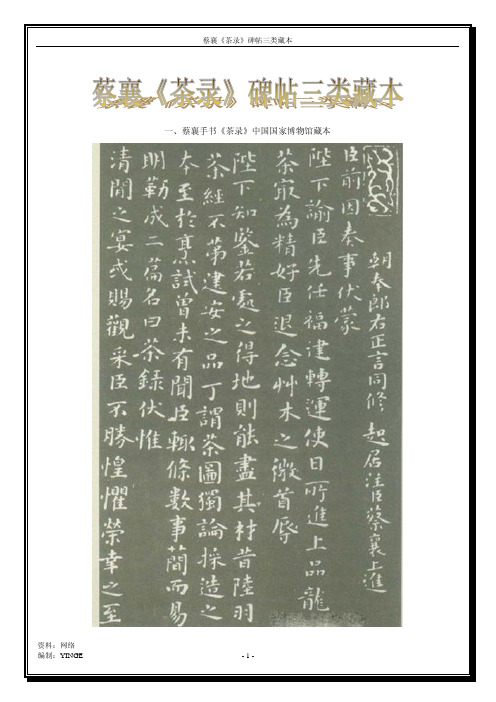 蔡襄《茶录》碑帖三类藏本
蔡襄《茶录》碑帖三类藏本
一、蔡襄手书《茶录》中国国家博物馆藏本
朝奉郎右正言同修 起居注臣蔡襄上進
臣前因奏事伏蒙
陛下諭臣先任福建轉運使日所進上品龍
茶冣為精好臣退念艸木之微首辱
陛下知鑒若處之得地則能盡其材昔陸羽
茶經不第建安之品丁謂茶圖獨論採造之
本至於烹試曾未有聞臣輒條數事簡而易
明勒成二篇名曰茶錄伏惟
清閒之宴或賜觀采臣不勝惶懼榮幸之至
资料：网络
编制：YINGE
- 1 -